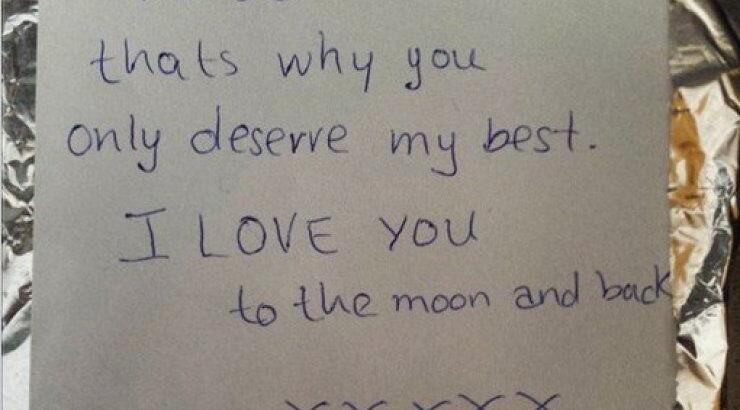 thats why you
only deserve my best.
I LOVE YOU
to the moon and back
xxxxx